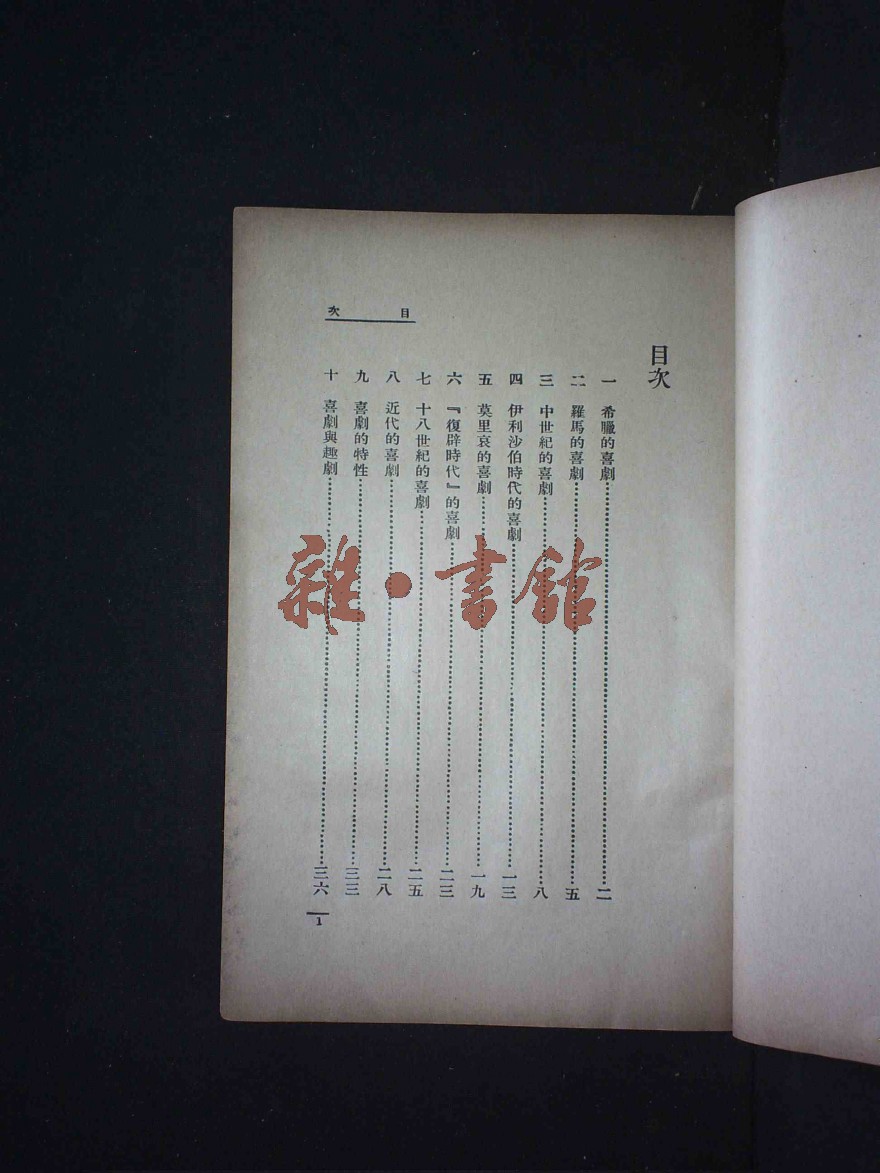 次目
目次
一 希臘的喜劇……二
二 羅馬的喜劇……五
三 中世紀的喜劇……八
四 伊利沙伯時代的喜劇……一三
五 莫里哀的喜劇……一九
六 『復辟時代』的喜劇……二三
七 十八世紀的喜劇……二五
八 近代的喜劇……二八
九 喜劇的特性……三三
十 喜劇與趣劇……三六
1
雜·書館